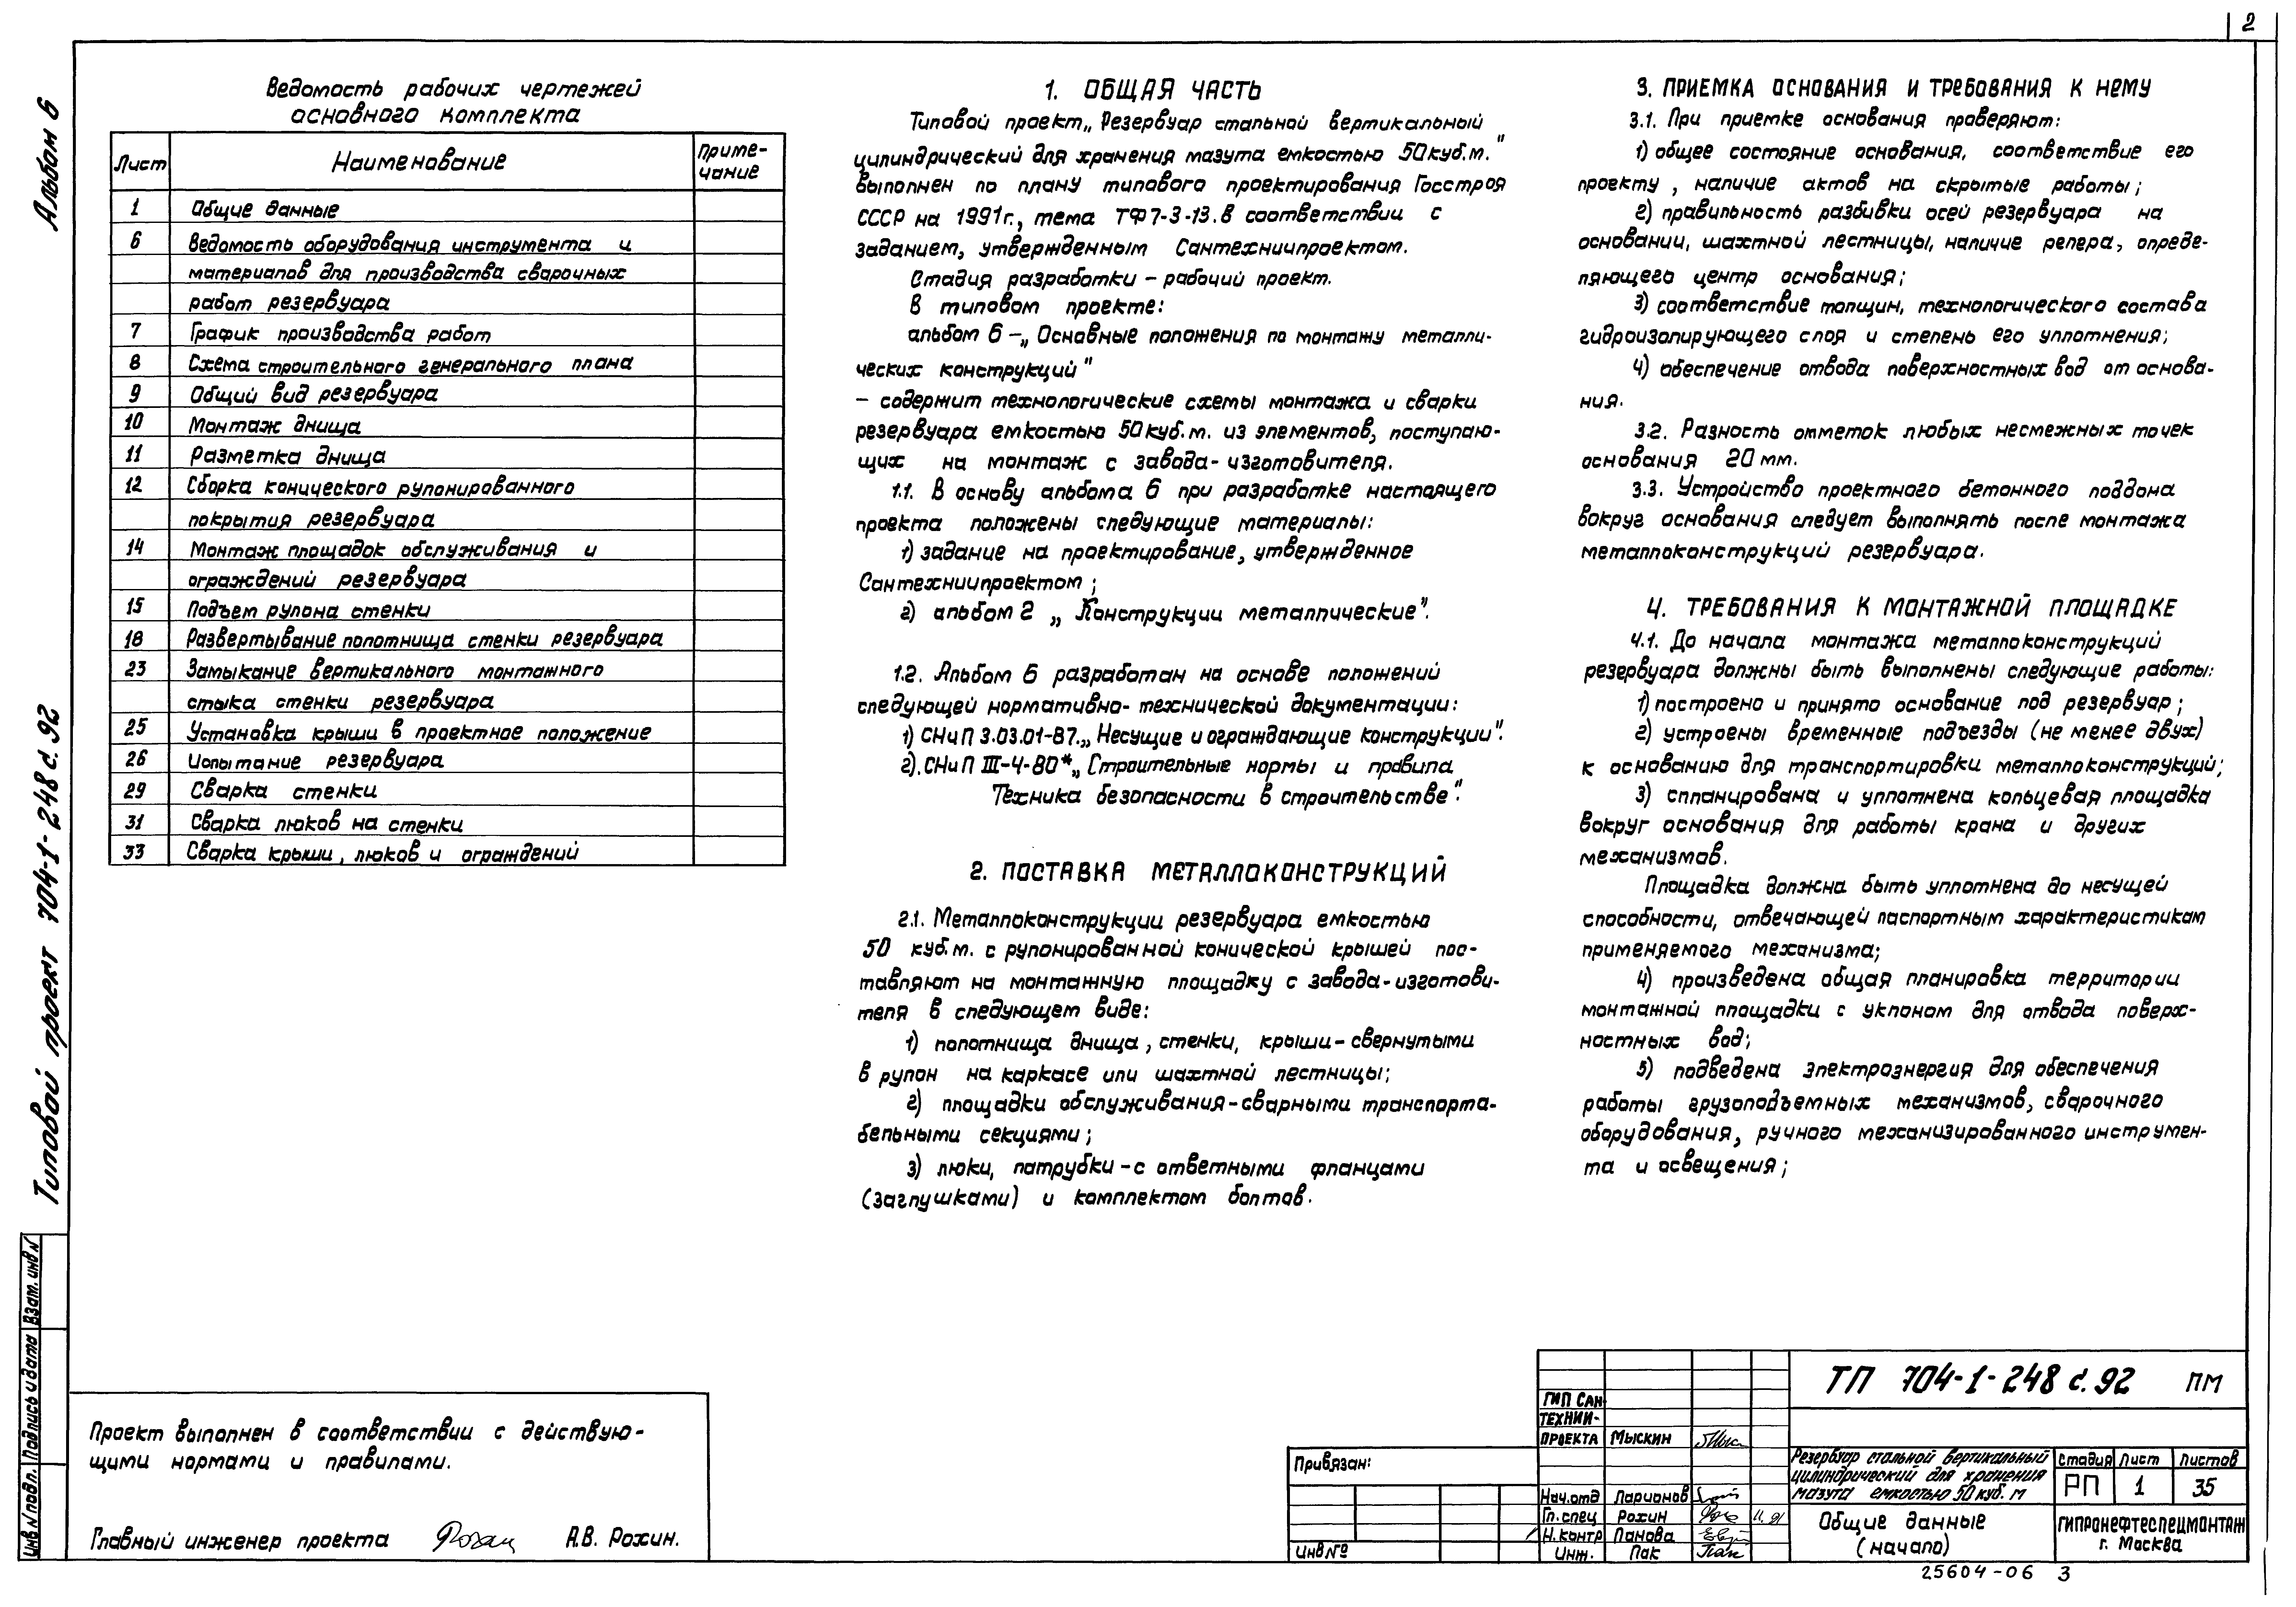 2
Альбом 6
Типовой проект 704-1-248 с.92
Ведомость рабочих чертежей
основного комплекта
Лист Наименование Приме-
чание
1 Общие данные
6 Ведомость оборудования инструмента и
материалов для производства сварочных
работ резервуара
7 График производства работ
8 Схема строительного генерального плана
9 Общий вид резервуара
10 Монтаж днища
11 Разметка днища
12 Сборка конического рулонированного
покрытия резервуара
14 Монтаж площадок обслуживания и
ограждений резервуара
15 Подъем рулона стенки
18 Развертывание полотнища стенки резервуара
23 Замыкание вертикального монтажного
стыка стенки резервуара
25 Установка крыши в проектное положение
26 Испытание резервуара
29 Сварка стенки
31 Сварка люков на стенки
33 Сварка крыши, люков и ограждений
1. ОБЩАЯ ЧАСТЬ
Типовой проект „Резервуар стальной вертикальный
цилиндрический для хранения мазута емкостью 50 куб.м."
выполнен по плану типового проектирования Госстроя
СССР на 1991г., тема ТФ7-3-13.В соответствии с
заданием, утвержденным Сантехниипроектом.
Стадия разработки – рабочий проект.
В типовом проекте:
альбом 6 – „Основные положения по монтажу металли-
ческих конструкций"
– содержит технологические схемы монтажа и сварки
резервуара емкостью 50куб.м. из элементов, поступаю-
щих на монтаж с завода-изготовителя.
1.1. В основу альбома 6 при разработке настоящего
проекта положены следующие материалы:
1) задание на проектирование, утвержденное
Сантехниипроектом;
2) альбом 2 „Конструкции металлические".
1.2. Альбом 6 разработан на основе положений
следующей нормативно-технической документации:
1) СНиП 3.03.01-87.„Несущие и ограждающие конструкции".
2).СНиП III-4-80*„Строительные нормы и правила
Техника безопасности в строительстве".
2. ПОСТАВКА МЕТАЛЛОКОНСТРУКЦИЙ
2.1. Металлоконструкции резервуара емкостью
50 куб.м. с рулонированной конической крышей пос-
тавляют на монтажную площадку с завода-изготови-
теля в следующем виде:
1) полотнища днища, стенки, крыши-свернутыми
в рулон на каркасе или шахтной лестницы;
2) площадки обслуживания-сварными транспорта-
бельными секциями;
3) люки, патрубки-с ответными фланцами
(заглушками) и комплектом болтов.
3. ПРИЕМКА ОСНОВАНИЯ И ТРЕБОВАНИЯ К НЕМУ
3.1. При приемке основания проверяют:
1) общее состояние основания, соответствие его
проекту, наличие актов на скрытые работы;
2) правильность разбивки осей резервуара на
основании, шахтной лестницы, наличие репера, опреде-
ляющего центр основания;
3) соответствие толщин, технологического состава
гидроизолирующего слоя и степень его уплотнения;
4) обеспечение отвода поверхностных вод от основа-
ния.
3.2. Разность отметок любых несмежных точек
основания 20 мм.
3.3. Устройство проектного бетонного поддона
вокруг основания следует выполнять после монтажа
металлоконструкций резервуара.
4. ТРЕБОВАНИЯ К МОНТАЖНОЙ ПЛОЩАДКЕ
4.1. До начала монтажа металлоконструкций
резервуара должны быть выполнены следующие работы:
1) построено и принято основание под резервуар;
2) устроены временные подъезды (не менее двух)
к основанию для транспортировки металлоконструкций;
3) спланирована и уплотнена кольцевая площадка
вокруг основания для работы крана и других
механизмов.
Площадка должна быть уплотнена до несущей
способности, отвечающей паспортным характеристикам
применяемого механизма;
4) произведена общая планировка территории
монтажной площадки с уклоном для отвода поверх-
ностных вод;
5) подведена электроэнергия для обеспечения
работы грузоподъемных механизмов, сварочного
оборудования, ручного механизированного инструмен-
та и освещения;
Инв N подл. Подпись и дата Взам. инв N
Проект выполнен в соответствии с действую-
щими нормами и правилами.
Главный инженер проекта А.В. Рохин.
Привязан:
Инв №
ГИП САН
ТЕХНИИ-
ПРОЕКТА Мыскин
Нач.отд Ларионов
Гл.спец Рохин 11.91
Н.контр Панова
Инж. Пак
ТП 704-1-248 с.92 ПМ
Резервуар стальной вертикальный
цилиндрический для хранения
мазута емкостью 50 куб. м
Стадия Лист Листов
РП 1 35
Общие данные
(начало)
ГИПРОНЕФТЕСПЕЦМОНТАЖ
г. Москва
25604-06 3